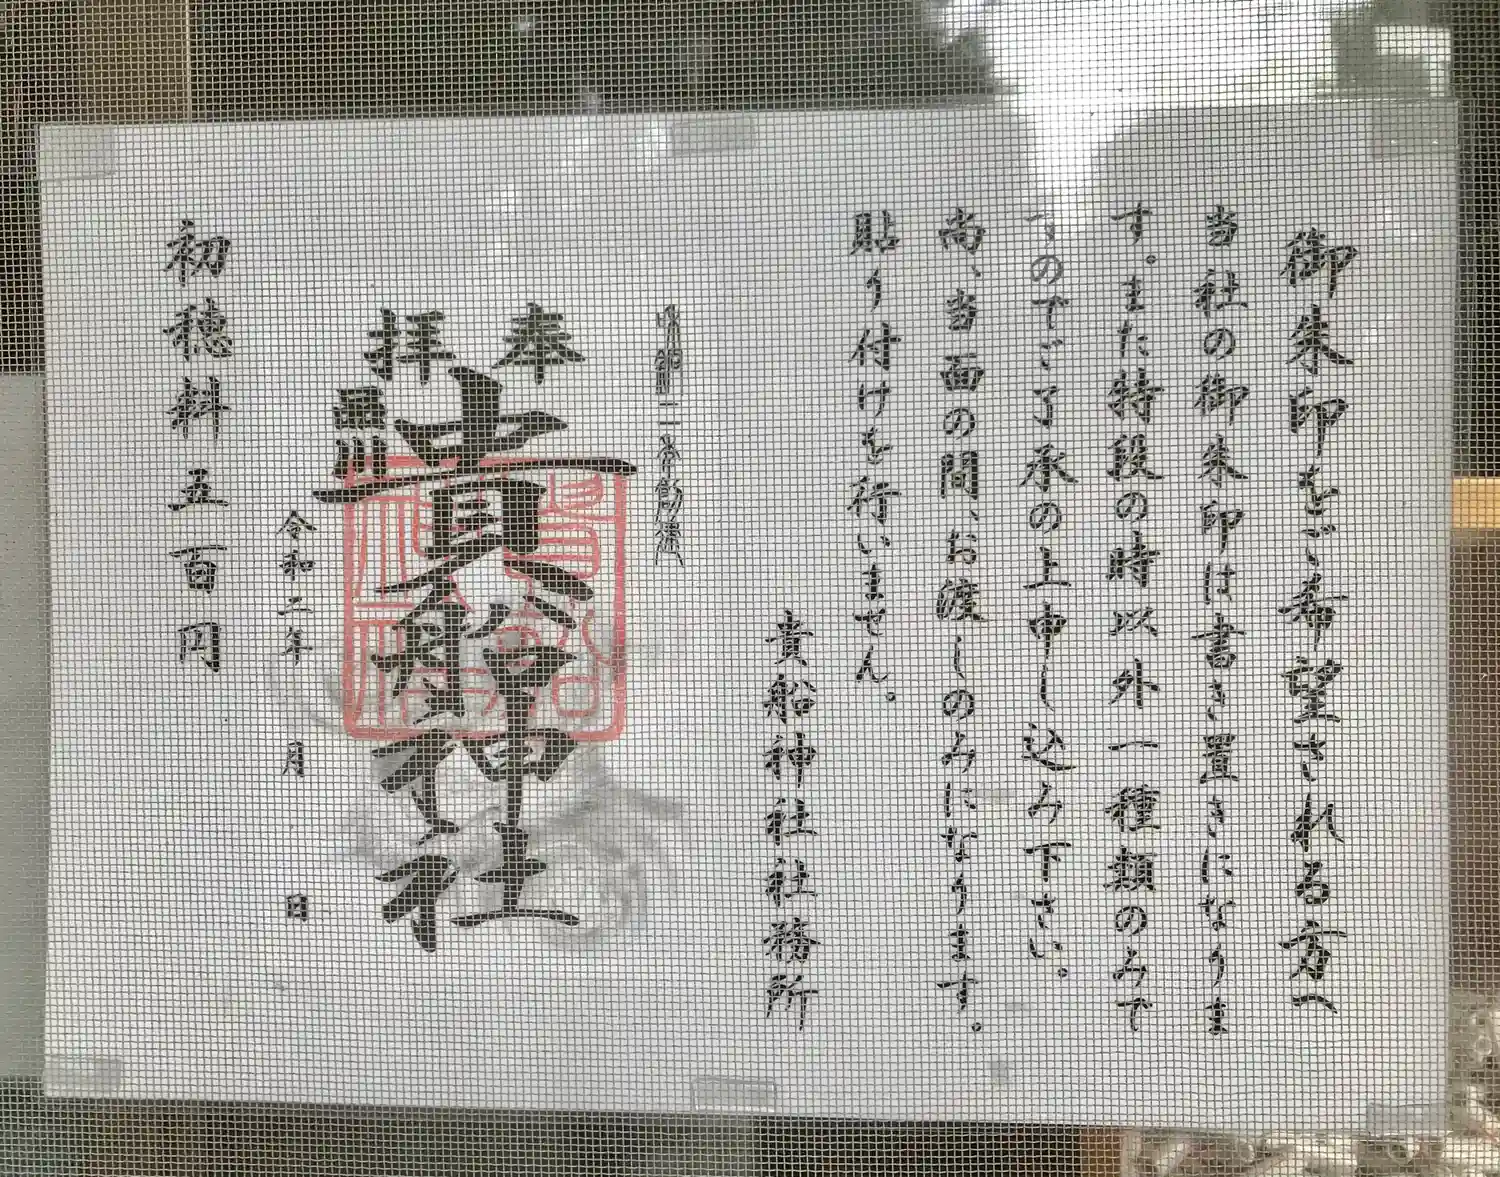 御朱印をご希望される方へ
当社の御朱印は書き置きになりま
す。また特段の時以外一種類のみで
すのでご了承の上申し込み下さい。
尚、当面の間、お渡しのみになります。
貼り付けを行いません。
貴船神社社務所
奉拝
品川
貴船神社
令和二年 月 日
初穂料 五百円